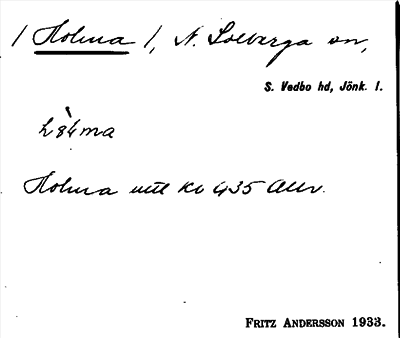 / Holma /, N. Solberga sn,
S. Vedbo hd, Jönk. l.
Holma mtl Kv 435 Allv.
FRITZ ANDERSSON 1933.